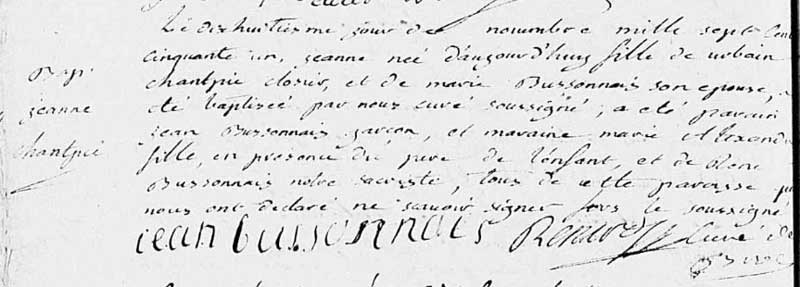 Bap.
jeanne
chantpie
Le dixhuitieme jour de novembre mille sept cent
cinquante un, jeanne neé d'aujourd'huy fille de urbain
chantpie closier, et de marie Bussonnais son epouse, a
été baptizeé par nous curé soussigné; a été parain
jean Bussonnais garcon, et maraine marie
fille, en presence du pere de l'enfant, et de Rene
Bussonnais notre sacriste, tous de cette paroisse
nous ont declaré ne scavoir signer fors le soussigné
jean bussonnais curé de